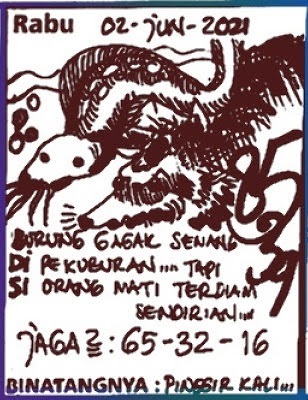 Rabu 02-JUN-2021
BURUNG GAGAK SENANG
DI PEKUBURAN... TAPI
SI ORANG MATI TERDIAM
SENDIRIAN...
JAGA2 : 65-32-16
BINATANGNYA : PINGGIR KALI...